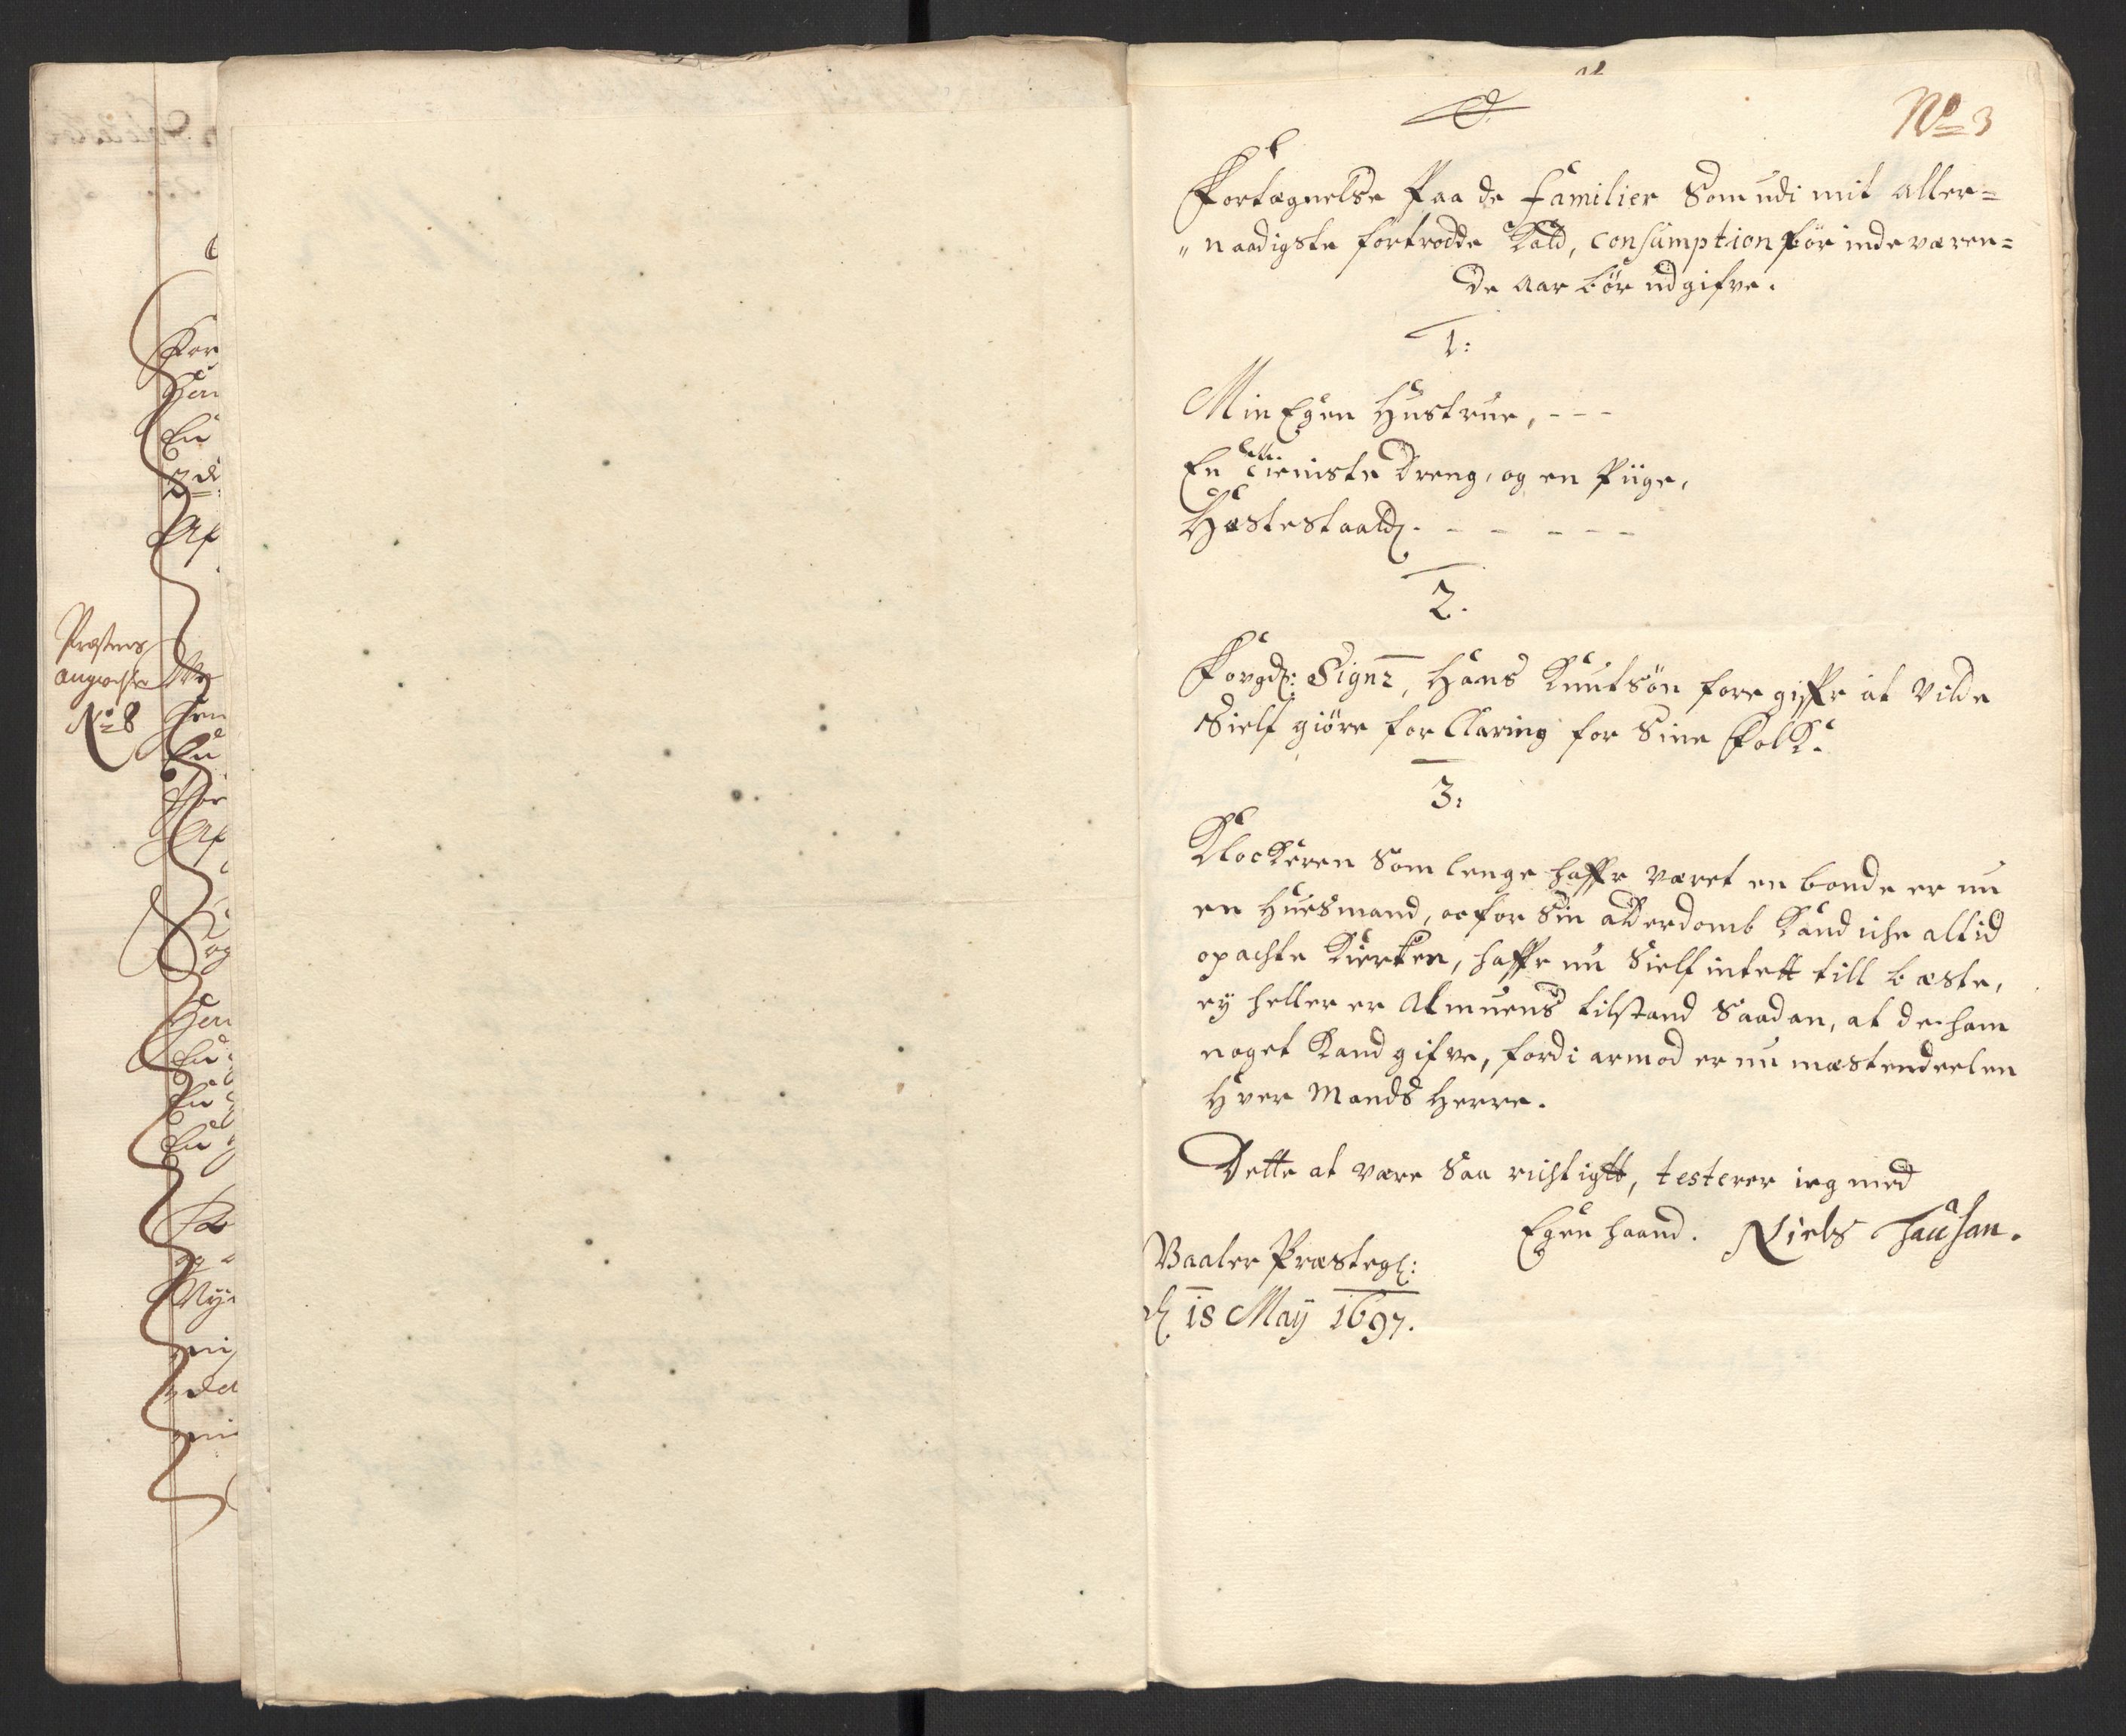 Præstens
angivelse
No 8
For
En
Af
En
Af
og
En
En
No 3
Fortegnelse Paa de familier Som udi mit aller=
"naadigste fortrodde Kald, consumption för indeværen=
de Aar bör udgifve.
1:
Min Egen Hustrue, - - -
En lille tieniste dreng, og en Piige,
Hæste staald. - - - - -
2.
Fougd: Sign2, Hans Knutsön foregiffr at vilde
Sielf giöre forklaring for Sine Folk.
3:
Klockeren Som lenge haffr været en bonde er nu
en Huesmand, oc for Sin alderdomb Kand iche altid
opachte Kierken, haffr nu Sielf intett till bæste,
ey heller er Almuens tilstand Saadan, at de ham
noget Kand gifve, fordi armod er nu mæstendeelen
Hver Mands Herre.
Dette at være Saa richtigtt, testerer ieg med
Egen haand. Niels Tausan.
Vaaler Præsteg:
d 18 Maÿ 1697.